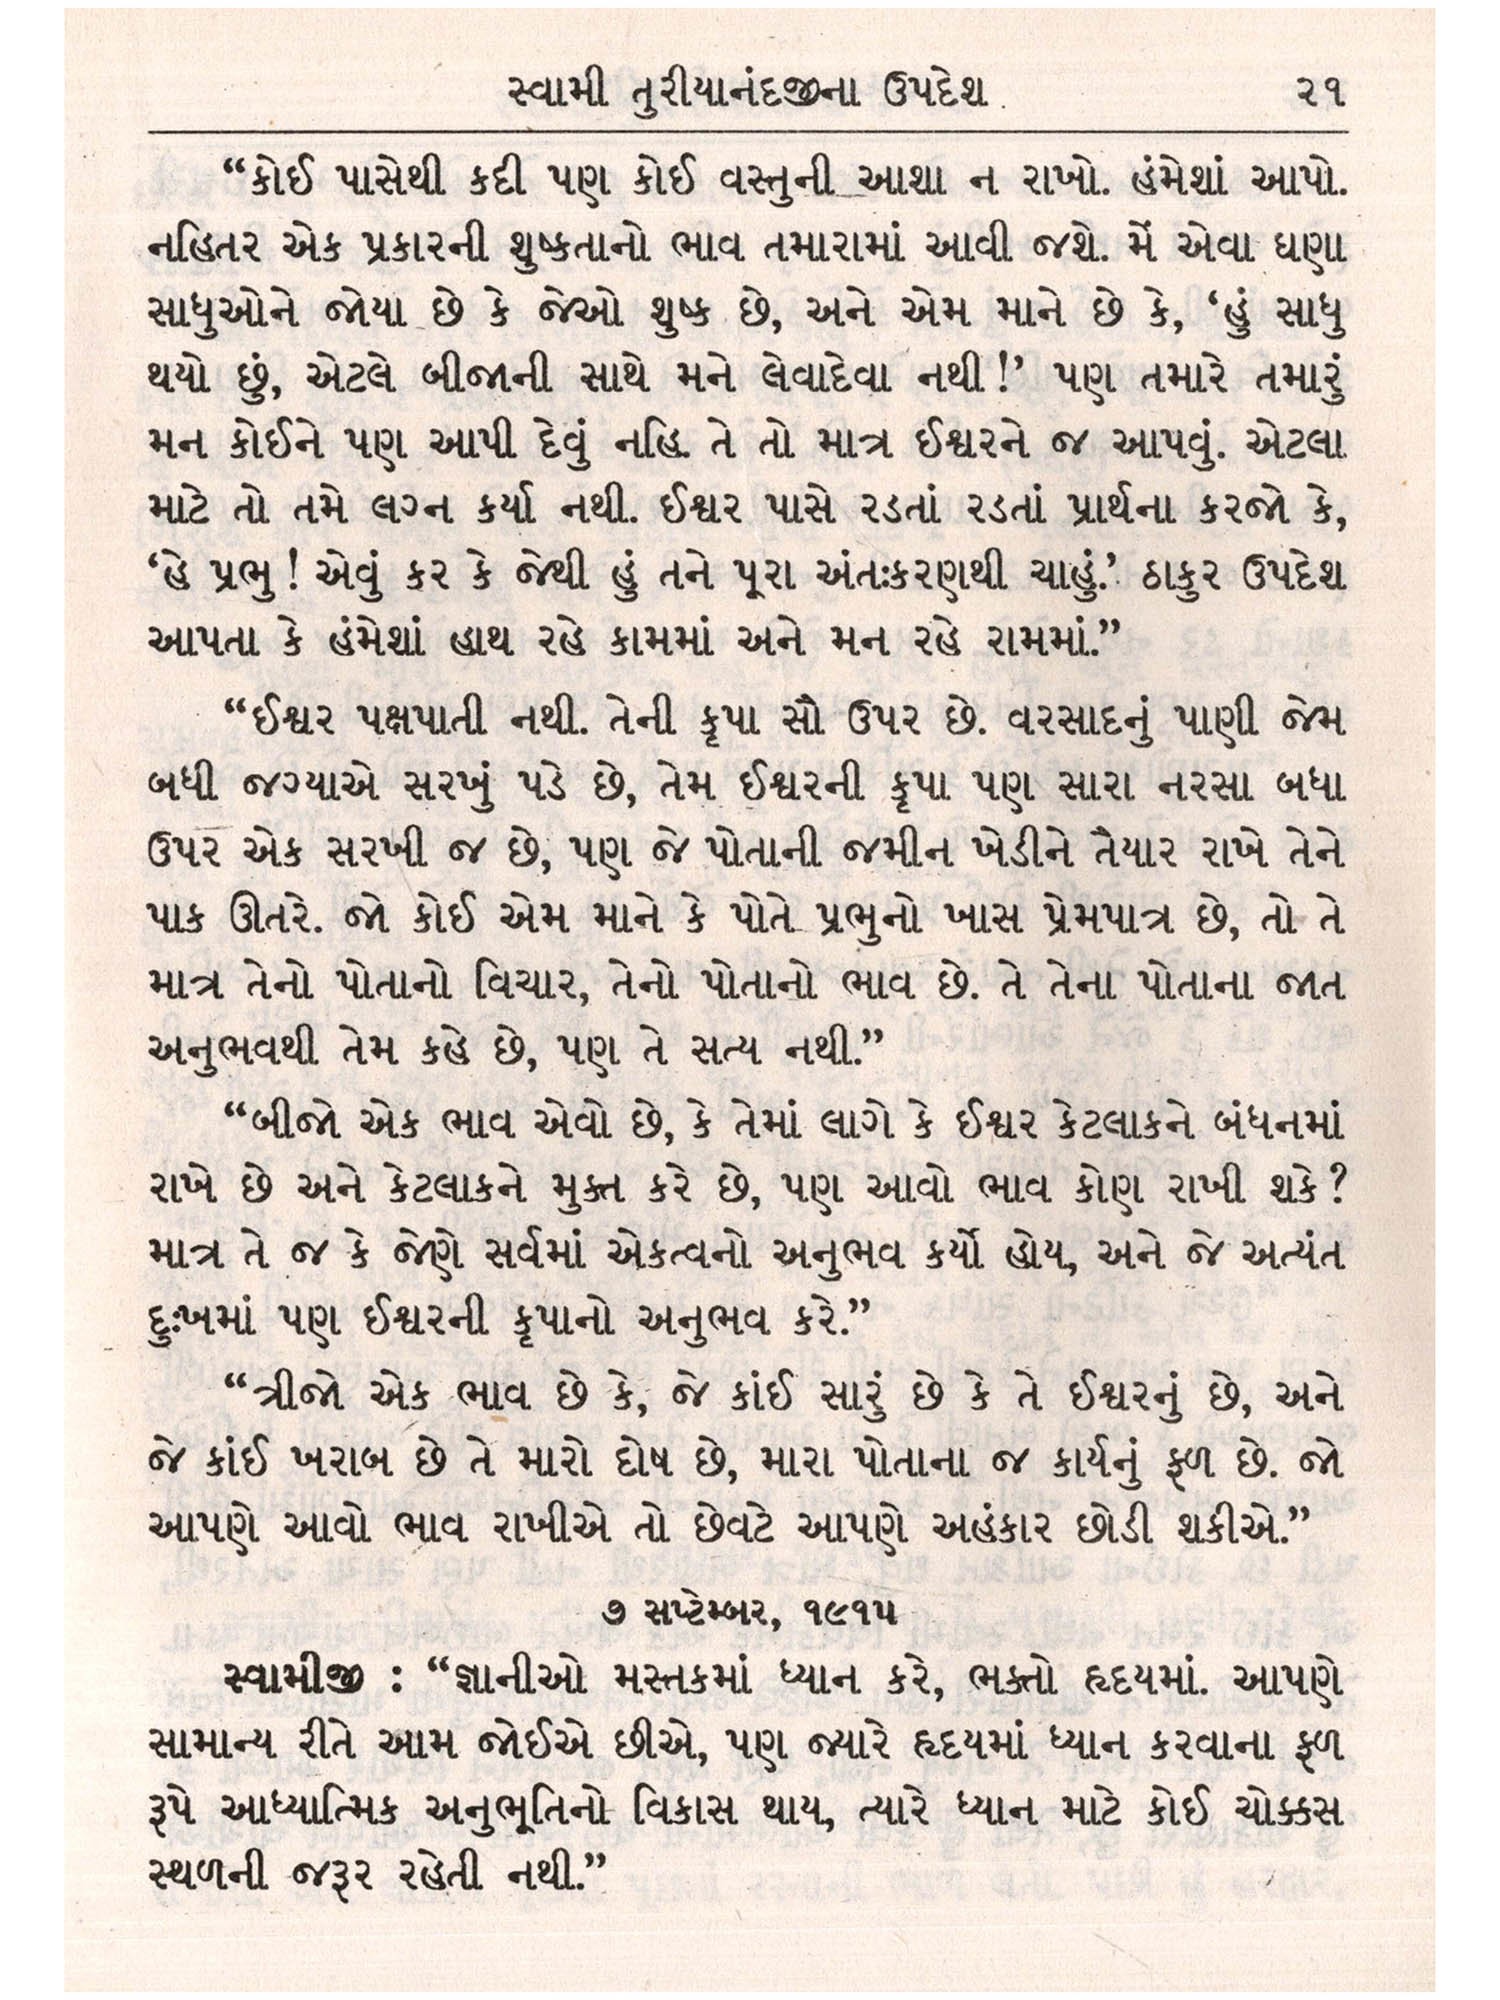 સ્વામી તુરીયાનંદજીના ઉપદેશ ૨૧
“કોઈ પાસેથી કદી પણ કોઈ વસ્તુની આશા ન રાખો. હંમેશાં આપો.
નહિતર એક પ્રકારની શુષ્કતાનો ભાવ તમારામાં આવી જશે. મેં એવા ઘણા
સાધુઓને જોયા છે કે જેઓ શુષ્ક છે, અને એમ માને છે કે, ‘હું સાધુ
થયો છું, એટલે બીજાની સાથે મને લેવાદેવા નથી!’ પણ તમારે તમારું
મન કોઈને પણ આપી દેવું નહિ. તે તો માત્ર ઈશ્વરને જ આપવું. એટલા
માટે તો તમે લગ્ન કર્યા નથી. ઈશ્વર પાસે રડતાં રડતાં પ્રાર્થના કરજો કે,
‘હે પ્રભુ! એવું કર કે જેથી હું તને પૂરા અંતઃકરણથી ચાહું.’ ઠાકુર ઉપદેશ
આપતા કે હંમેશાં હાથ રહે કામમાં અને મન રહે રામમાં.”
“ઈશ્વર પક્ષપાતી નથી. તેની કૃપા સૌ ઉપર છે. વરસાદનું પાણી જેમ
બધી જગ્યાએ સરખું પડે છે, તેમ ઈશ્વરની કૃપા પણ સારા નરસા બધા
ઉપર એક સરખી જ છે, પણ જે પોતાની જમીન ખેડીને તૈયાર રાખે તેને
પાક ઊતરે. જો કોઈ એમ માને કે પોતે પ્રભુનો ખાસ પ્રેમપાત્ર છે, તો તે
માત્ર તેનો પોતાનો વિચાર, તેનો પોતાનો ભાવ છે. તે તેના પોતાના જાત
અનુભવથી તેમ કહે છે, પણ તે સત્ય નથી.”
“બીજો એક ભાવ એવો છે, કે તેમાં લાગે કે ઈશ્વર કેટલાકને બંધનમાં
રાખે છે અને કેટલાકને મુક્ત કરે છે, પણ આવો ભાવ કોણ રાખી શકે?
માત્ર તે જ કે જેણે સર્વમાં એકત્વનો અનુભવ કર્યો હોય, અને જે અત્યંત
દુઃખમાં પણ ઈશ્વરની કૃપાનો અનુભવ કરે.”
“ત્રીજો એક ભાવ છે કે, જે કાંઈ સારું છે કે તે ઈશ્વરનું છે, અને
જે કાંઈ ખરાબ છે તે મારો દોષ છે, મારા પોતાના જ કાર્યનું ફળ છે. જો
આપણે આવો ભાવ રાખીએ તો છેવટે આપણે અહંકાર છોડી શકીએ.”
૭ સપ્ટેમ્બર, ૧૯૧૫
સ્વામીજી : “જ્ઞાનીઓ મસ્તકમાં ધ્યાન કરે, ભક્તો હૃદયમાં. આપણે
સામાન્ય રીતે આમ જોઈએ છીએ, પણ જ્યારે હૃદયમાં ધ્યાન કરવાના ફળ
રૂપે આધ્યાત્મિક અનુભૂતિનો વિકાસ થાય, ત્યારે ધ્યાન માટે કોઈ ચોક્કસ
સ્થળની જરૂર રહેતી નથી.”